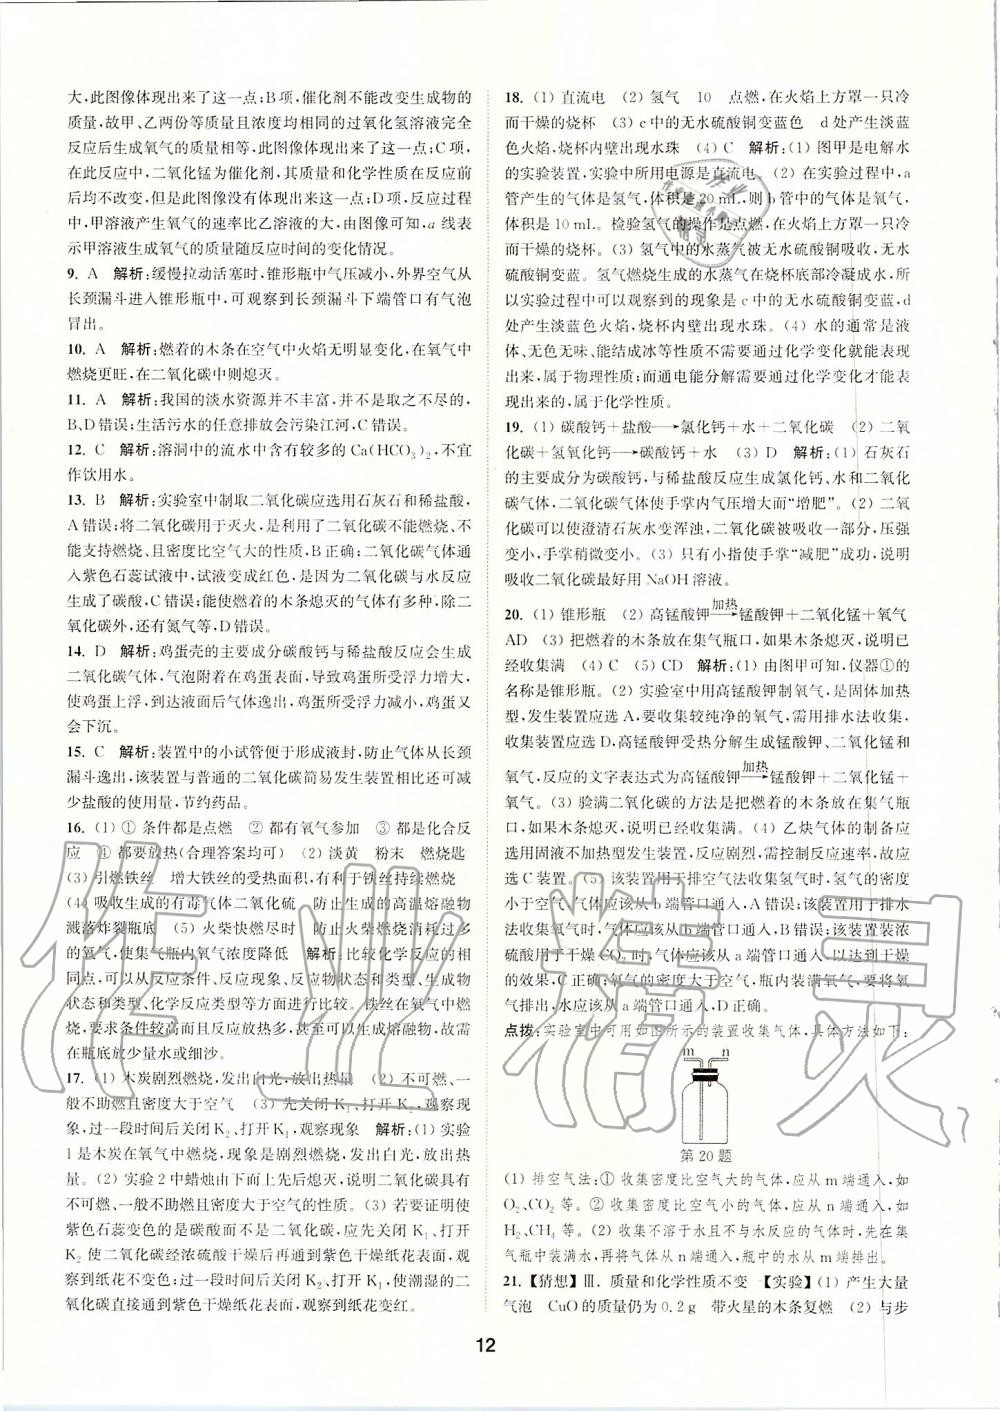 大,此图像体现出来了这一点;B项,催化剂不能改变生成物的
质量,故甲、乙两份等质量且浓度均相同的过氧化氢溶液完全
反应后生成氧气的质量相等,此图像体现出来了这一点;C项,
在此反应中,二氧化锰为催化剂,其质量和化学性质在反应前
后均不改变,但是此图像没有体现出来这一点;D项,反应过程
中,甲溶液产生氧气的速率比乙溶液的大,由图像可知,a线表
示甲溶液生成氧气的质量随反应时间的变化情况。
9. A 解析:缓慢拉动活塞时,锥形瓶中气压减小,外界空气从
长颈漏斗进入锥形瓶中,可观察到长颈漏斗下端管口有气泡
冒出。
10. A 解析:燃着的木条在空气中火焰无明显变化,在氧气中
燃烧更旺,在二氧化碳中则熄灭。
11. A 解析:我国的淡水资源并不丰富,并不是取之不尽的,
B、D错误;生活污水的任意排放会污染江河,C错误。
12. C 解析:溶洞中的流水中含有较多的Ca(HCO₃)₂,不宜
作饮用水。
13. B 解析:实验室中制取二氧化碳应选用石灰石和稀盐酸,
A错误;将二氧化碳用于灭火,是利用了二氧化碳不能燃烧、不
能支持燃烧、且密度比空气大的性质,B正确;二氧化碳气体通
入紫色石蕊试液中,试液变成红色,是因为二氧化碳与水反应
生成了碳酸,C错误;能使燃着的木条熄灭的气体有多种,除二
氧化碳外,还有氮气等,D错误。
14. D 解析:鸡蛋壳的主要成分碳酸钙与稀盐酸反应会生成
二氧化碳气体,气泡附着在鸡蛋表面,导致鸡蛋所受浮力增大,
使鸡蛋上浮,到达液面后气体逸出,鸡蛋所受浮力减小,鸡蛋又
会下沉。
15. C 解析:装置中的小试管便于形成液封,防止气体从长颈
漏斗逸出,该装置与普通的二氧化碳简易发生装置相比还可减
少盐酸的使用量,节约药品。
16. (1) ① 条件都是点燃 ② 都有氧气参加 ③ 都是化合反
应 ④ 都要放热(合理答案均可) (2) 淡黄 粉末 燃烧匙
(3) 引燃铁丝 增大铁丝的受热面积,有利于铁丝持续燃烧
(4) 吸收生成的有毒气体二氧化硫 防止生成的高温熔融物
溅落炸裂瓶底 (5) 火柴快燃尽时 防止火柴燃烧消耗过多
的氧气,使集气瓶内氧气浓度降低 解析:比较化学反应的相
同点,可以从反应条件、反应现象、反应物状态和类型、生成物
状态和类型、化学反应类型等方面进行比较。铁丝在氧气中燃
烧,要求条件较高而且反应放热多,甚至可以生成熔融物,故需
在瓶底放少量水或细沙。
17. (1) 木炭剧烈燃烧,发出白光,放出热量 (2) 不可燃、一
般不助燃且密度大于空气 (3) 先关闭K₁、打开K₂,观察现
象,过一段时间后关闭K₂、打开K₁,观察现象 解析:(1) 实验
1是木炭在氧气中燃烧,现象是剧烈燃烧,发出白光,放出热
量。(2) 实验2中蜡烛由下而上先后熄灭,说明二氧化碳具有
不可燃、一般不助燃且密度大于空气的性质。(3) 若要证明使
紫色石蕊变色的是碳酸而不是二氧化碳,应先关闭K₁、打开
K₂使二氧化碳经浓硫酸干燥后再通到紫色干燥纸花表面,观
察到纸花不变色;过一段时间后关闭K₂、打开K₁,使潮湿的二
氧化碳直接通到紫色干燥纸花表面,观察到纸花变红。
18. (1) 直流电 (2) 氢气 10 点燃,在火焰上方罩一只冷
而干燥的烧杯 (3) c中的无水硫酸铜变蓝色 d处产生淡蓝
色火焰,烧杯内壁出现水珠 (4) C 解析:(1) 图甲是电解水
的实验装置,实验中所用电源是直流电。(2) 在实验过程中,a
管产生的气体是氢气,体积是20 mL,则b管中的气体是氧气,
体积是10 mL。检验氢气的操作是点燃,在火焰上方罩一只冷
而干燥的烧杯。(3) 氢气中的水蒸气被无水硫酸铜吸收,无水
硫酸铜变蓝。氢气燃烧生成的水蒸气在烧杯底部冷凝成水,所
以实验过程中可以观察到的现象是c中的无水硫酸铜变蓝,d
处产生淡蓝色火焰,烧杯内壁出现水珠。(4) 水的通常是液
体、无色无味、能结成冰等性质不需要通过化学变化就能表现
出来,属于物理性质;而通电能分解需要通过化学变化才能表
现出来的,属于化学性质。
19. (1) 碳酸钙+盐酸⟶氯化钙+水+二氧化碳 (2) 二氧
化碳+氢氧化钙⟶碳酸钙+水 (3) D 解析:(1) 石灰石
的主要成分为碳酸钙,与稀盐酸反应生成氯化钙、水和二氧化
碳气体,二氧化碳气体使手掌内气压增大而“增肥”。(2) 二氧
化碳可以使澄清石灰水变浑浊,二氧化碳被吸收一部分,压强
变小,手掌稍微变小。(3) 只有小指使手掌“减肥”成功,说明
吸收二氧化碳最好用NaOH溶液。
20. (1) 锥形瓶 (2) 高锰酸钾 加热⟶ 锰酸钾+二氧化锰+氧气
AD (3) 把燃着的木条放在集气瓶口,如果木条熄灭,说明已
经收集满 (4) C (5) CD 解析:(1) 由图甲可知,仪器①的
名称是锥形瓶。(2) 实验室中用高锰酸钾制氧气,是固体加热
型,发生装置应选A,要收集较纯净的氧气,需用排水法收集,
收集装置应选D,高锰酸钾受热分解生成锰酸钾、二氧化锰和
氧气,反应的文字表达式为高锰酸钾 加热⟶ 锰酸钾+二氧化锰+
氧气。(3) 验满二氧化碳的方法是把燃着的木条放在集气瓶
口,如果木条熄灭,说明已经收集满。(4) 乙炔气体的制备应
选用固液不加热型发生装置,反应剧烈,需控制反应速率,故应
选C装置。(5) 该装置用于排空气法收集氢气时,氢气的密度
小于空气,气体应该从b端管口通入,A错误;该装置用于排水
法收集氧气时,气体应该从b端管口通入,B错误;该装置装浓
硫酸用于干燥CO₂时,气体应该从a端管口通入,以达到干燥
的效果,C正确;氧气的密度大于空气,瓶内装满氧气,要将氧
气排出,水应该从a端管口通入,D正确。
点拨:实验室中可用如图所示的装置收集气体,具体方法如下:
m n
第20题
(1) 排空气法:① 收集密度比空气大的气体,应从m端通入,如
O₂、CO₂等。② 收集密度比空气小的气体,应从n端通入,如
H₂、CH₄等。(2) 收集不溶于水且不与水反应的气体时,先在集
气瓶中装满水,再将气体从n端通入,瓶中的水从m端排出。
21. 【猜想】Ⅲ. 质量和化学性质不变 【实验】(1) 产生大量
气泡 CuO的质量仍为0.2 g 带火星的木条复燃 (2) 与步
12
作业精灵